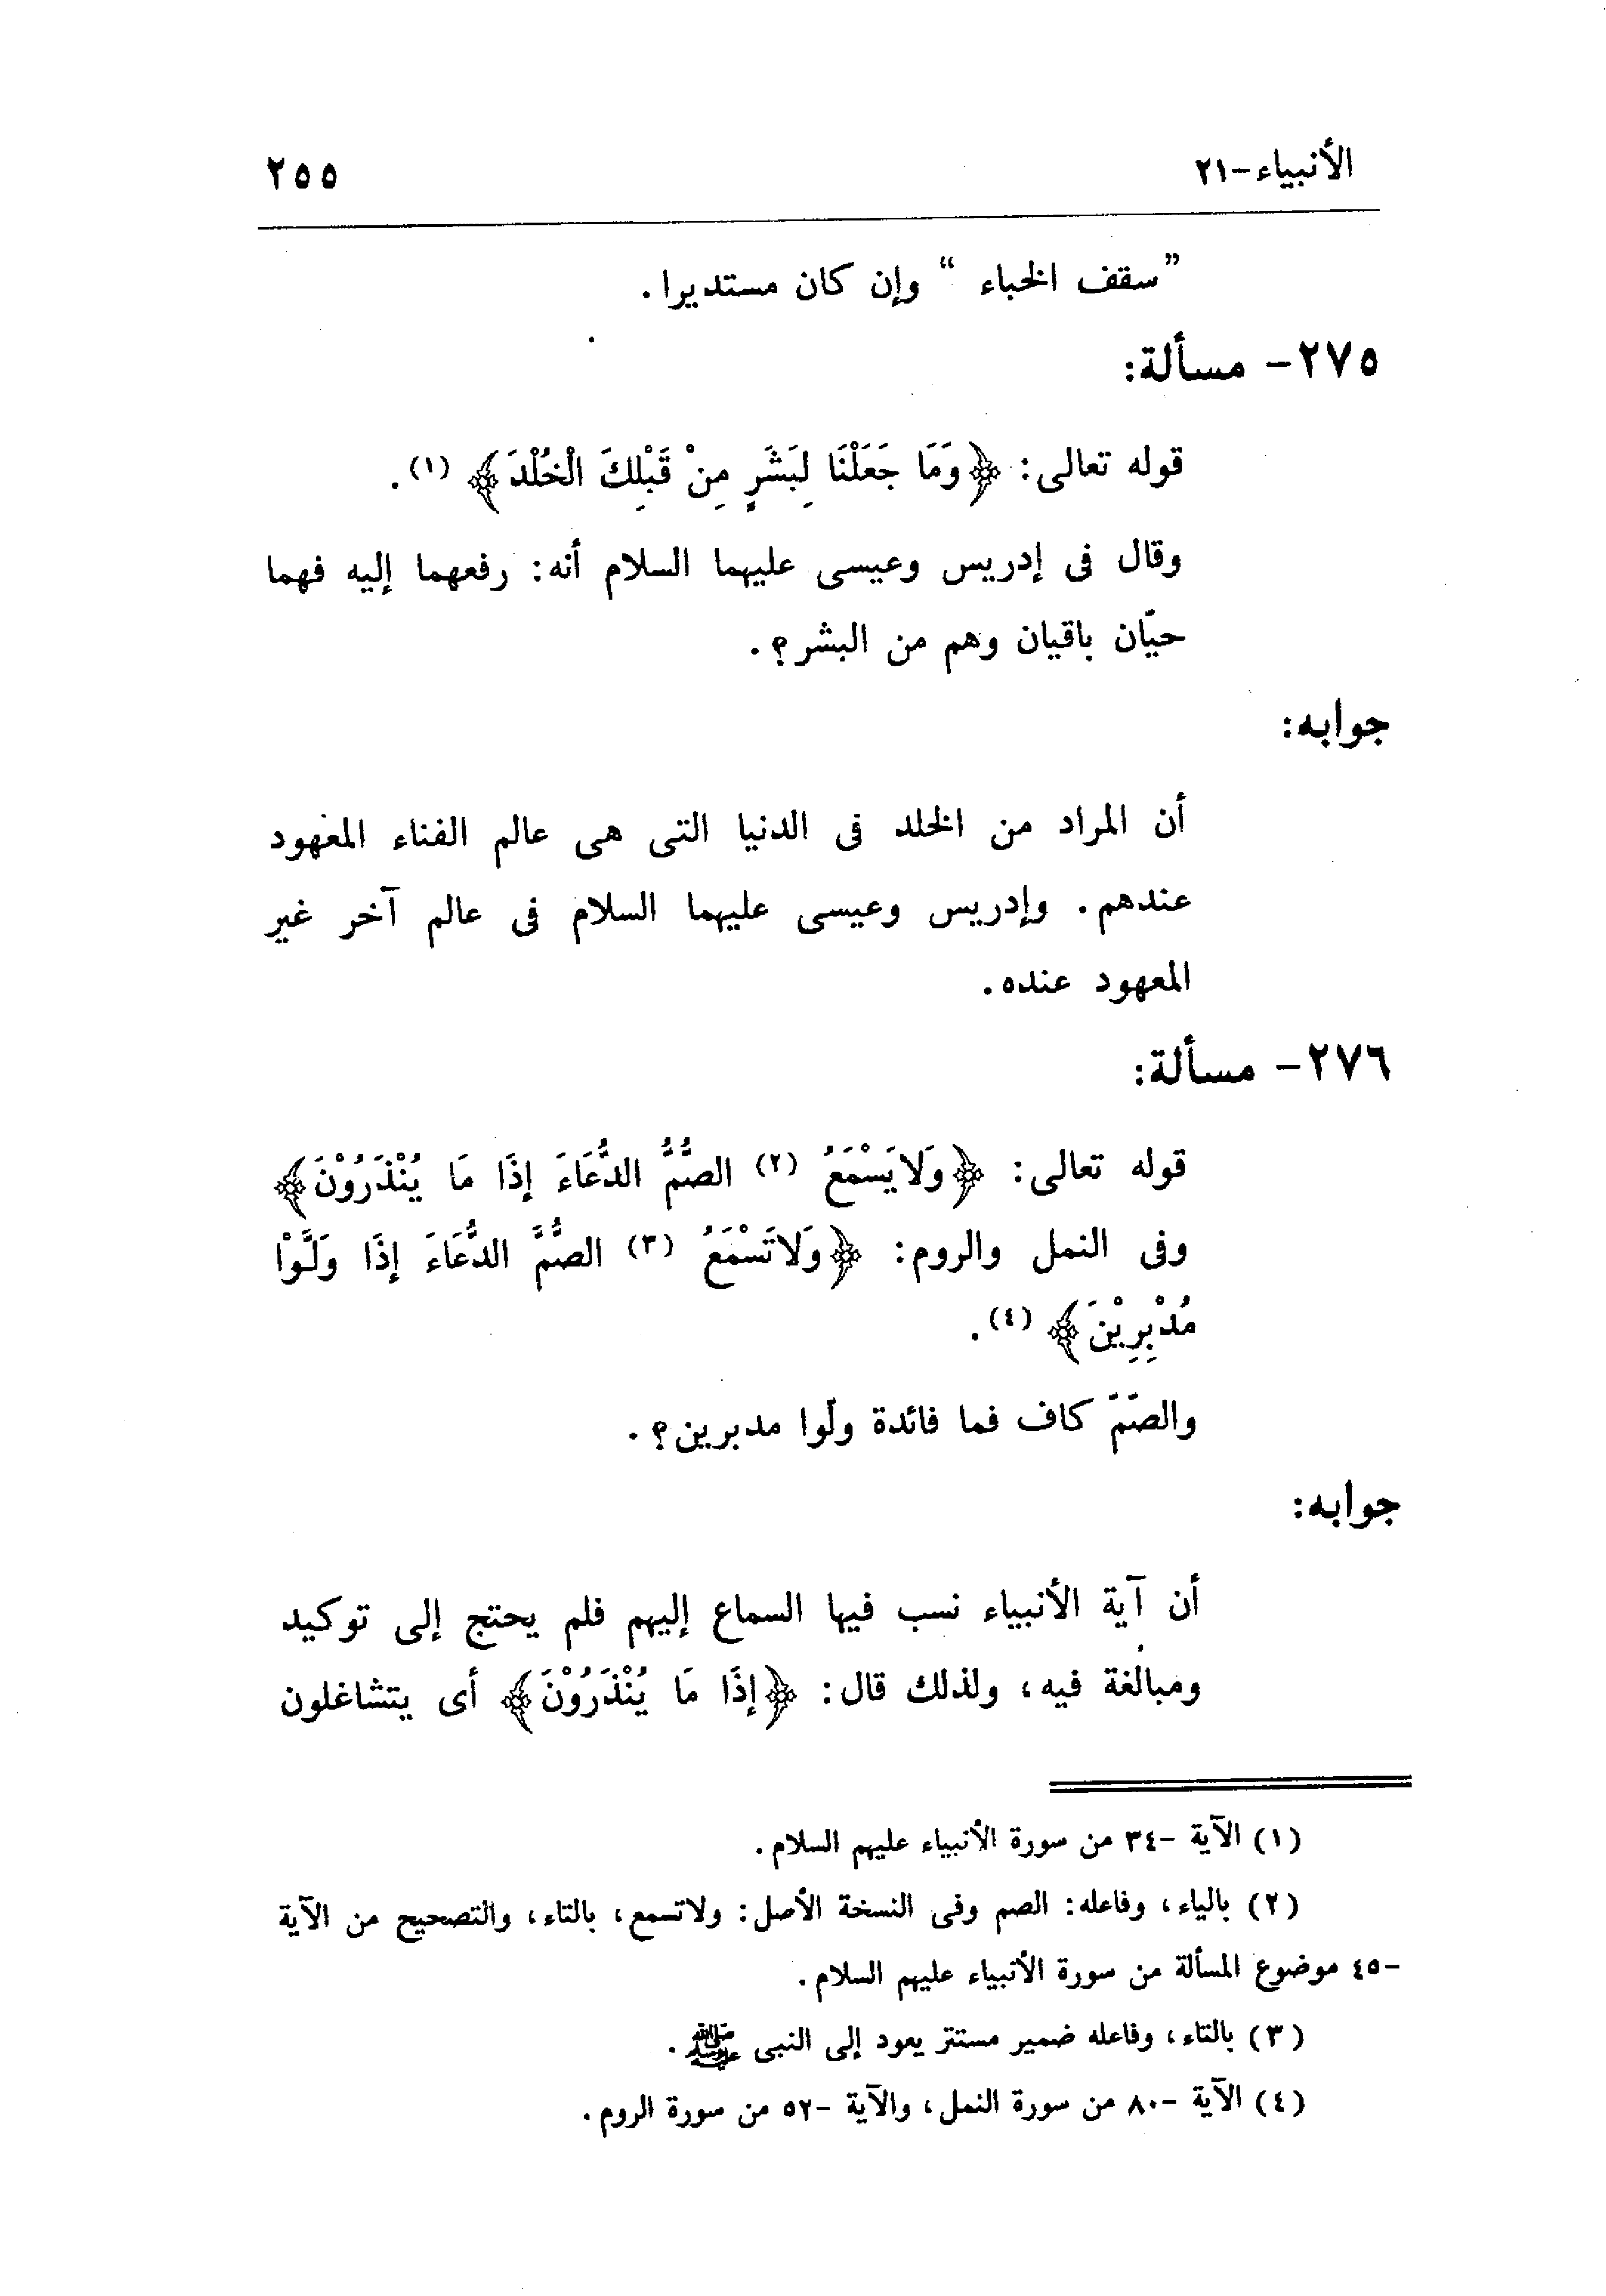 الأنبياء-٢١ ٢٥٥
”سقف الخباء “ وإن كان مستديرا .
٢٧٥- مسألة:
قوله تعالى: ﴿وَمَا جَعَلْنَا لِبَشَرٍ مِنْ قَبْلِكَ الْخُلْدَ﴾ (١) .
وقال فى إدريس وعيسى عليهما السلام أنه: رفعهما إليه فهما
حيّان باقيان وهم من البشر؟ .
جوابه:
أن المراد من الخلد فى الدنيا التى هى عالم الفناء المعهود
عندهم . وإدريس وعيسى عليهما السلام فى عالم آخر غير
المعهود عنده .
٢٧٦- مسألة:
قوله تعالى: ﴿وَلَايَسْمَعُ (٢) الصُّمُّ الدُّعَاءَ إِذَا مَا يُنْذَرُوْنَ﴾
وفى النمل والروم: ﴿وَلَاتَسْمَعُ (٣) الصُّمَّ الدُّعَاءَ إِذَا وَلَّوْا
مُدْبِرِيْنَ﴾ (٤) .
والصَمَمَ كاف فما فائدة ولّوا مدبرين؟ .
جوابه:
أن آية الأنبياء نسب فيها السماع إليهم فلم يحتج إلى توكيد
ومبالغة فيه، ولذلك قال: ﴿إِذَا مَا يُنْذَرُوْنَ﴾ أى يتشاغلون
(١) الآية -٣٤ من سورة الأنبياء عليهم السلام .
(٢) بالياء، وفاعله: الصم وفى النسخة الأصل: ولاتسمع، بالتاء، والتصحيح من الآية
-٤٥ موضوع المسألة من سورة الأنبياء عليهم السلام .
(٣) بالتاء، وفاعله ضمير مستتر يعود إلى النبى ﷺ .
(٤) الآية -٨٠ من سورة النمل، والآية -٥٢ من سورة الروم .